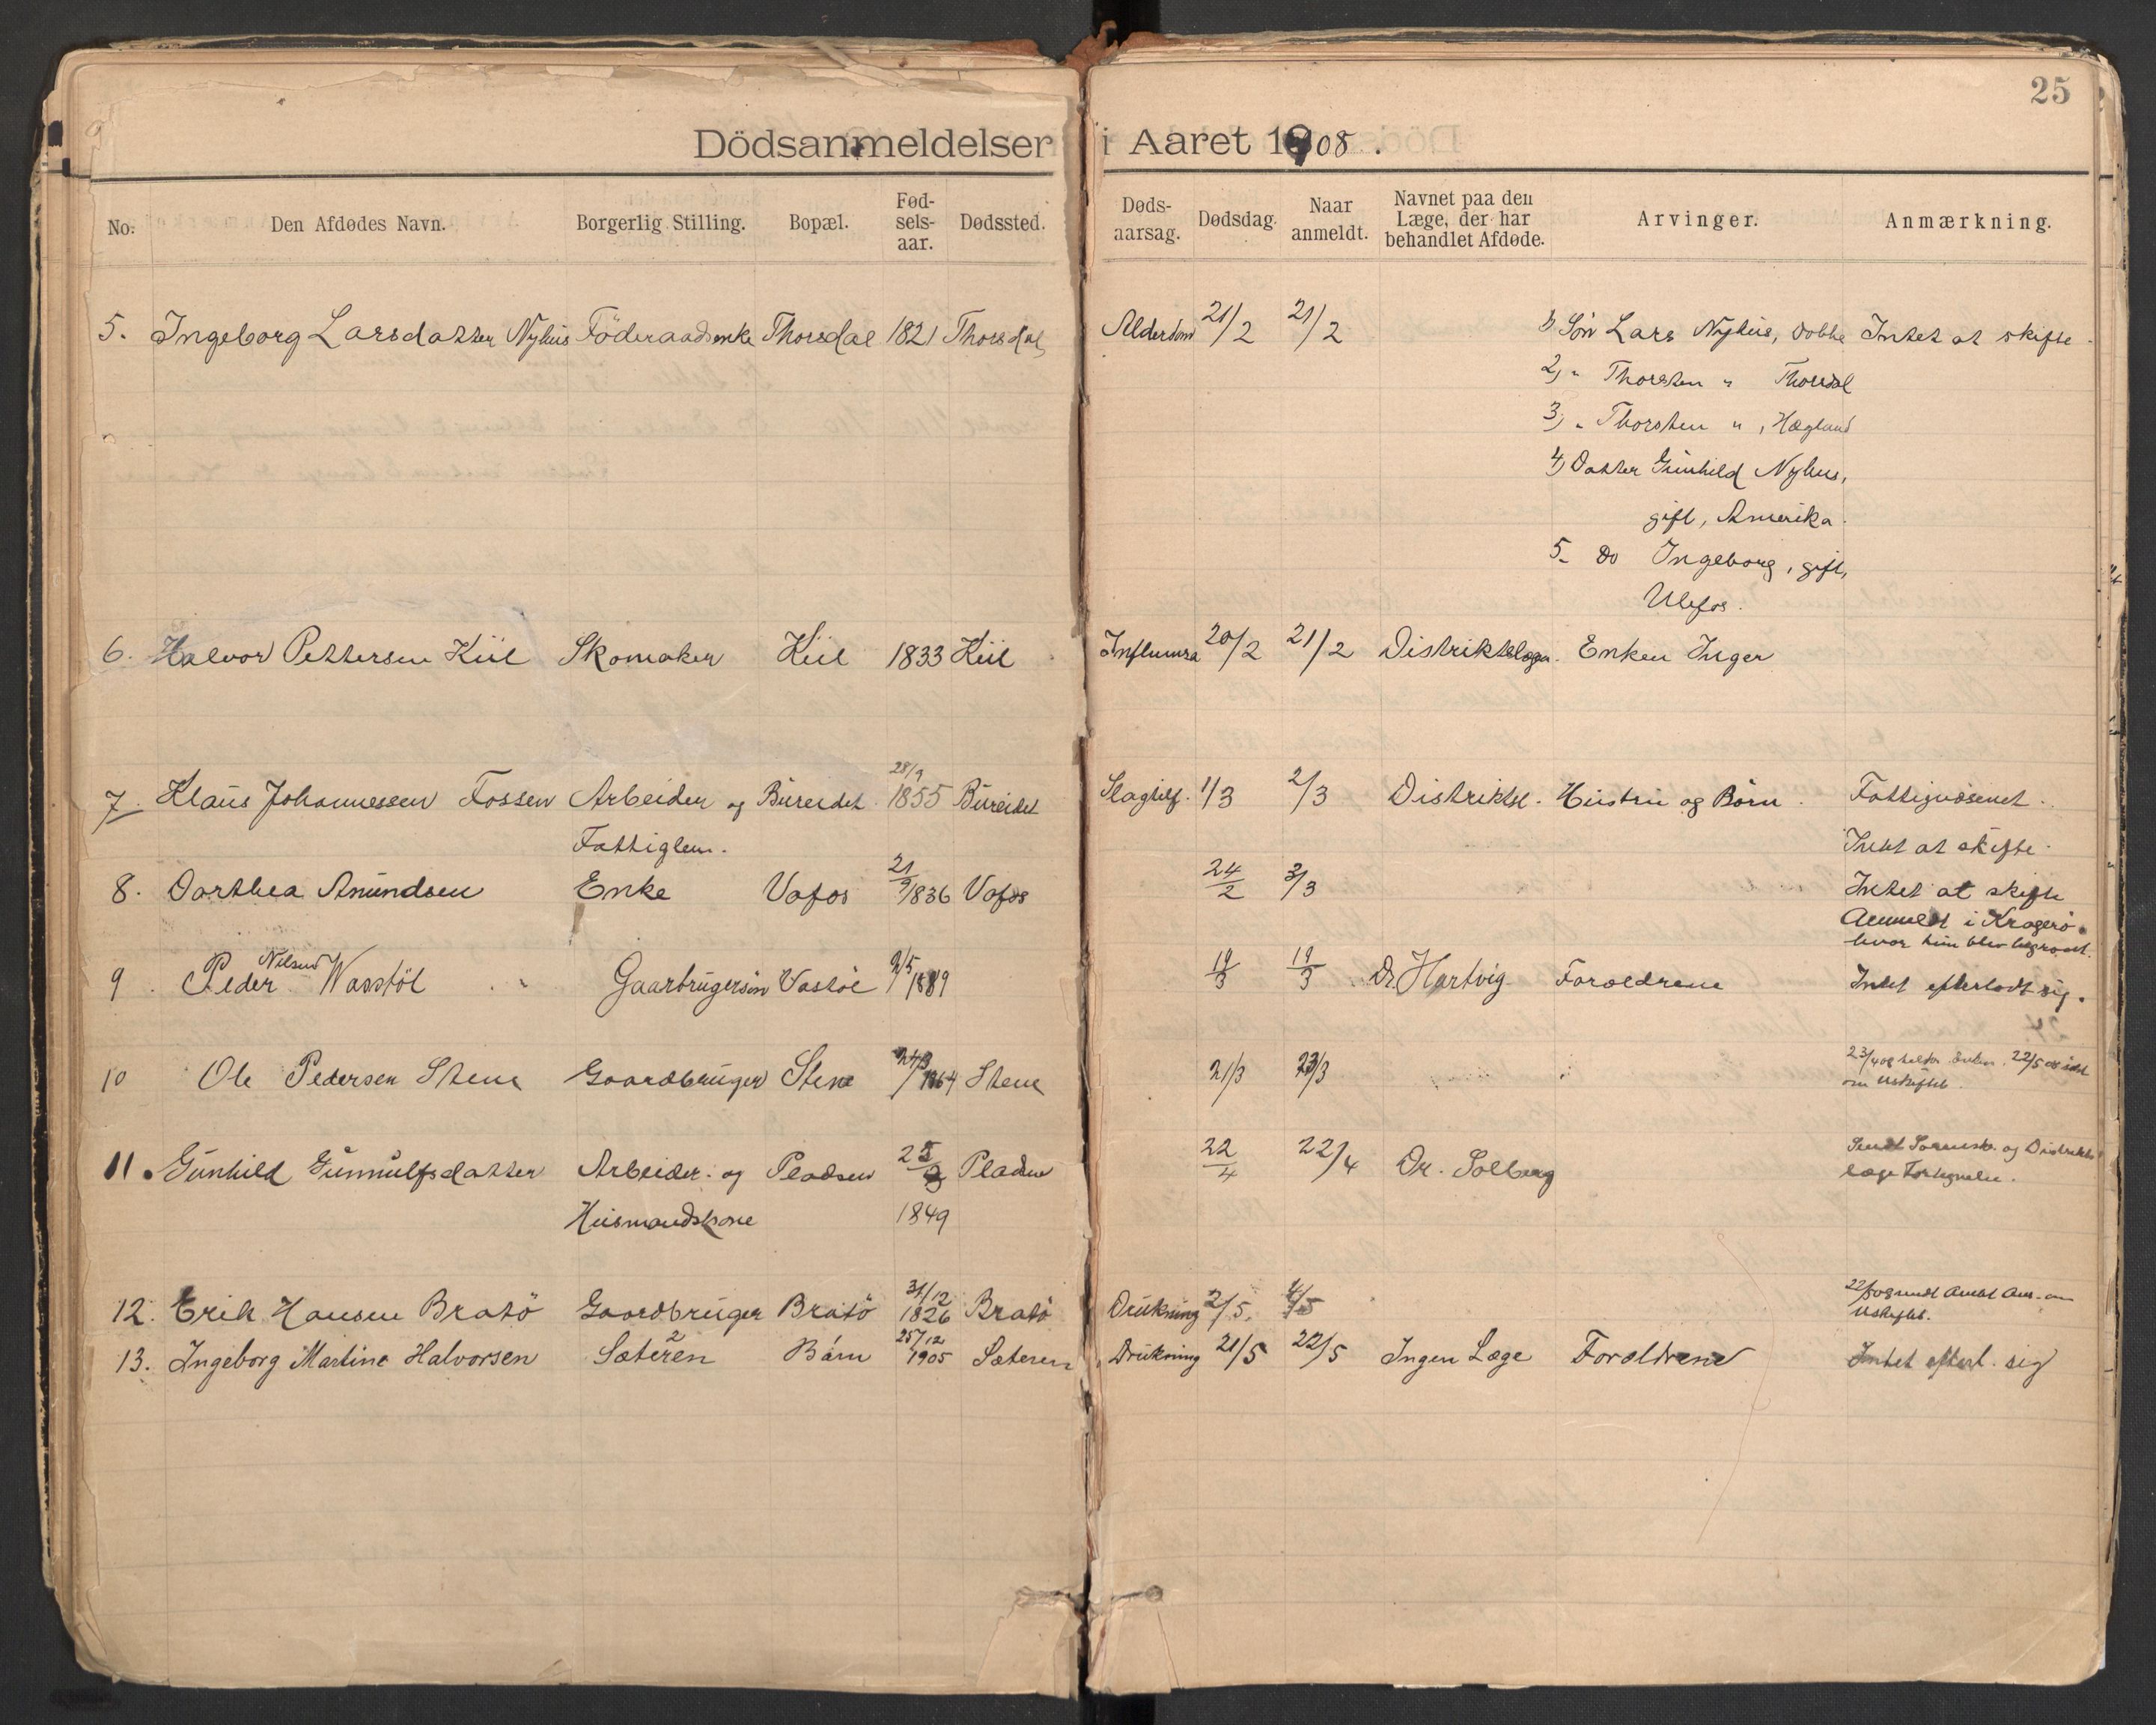 25
Dödsanmeldelser i Aaret 1908.
No. Den Afdødes Navn. Borgerlig Stilling. Bopæl. Fød-sels-aar. Dødssted. Døds-aarsag. Dødsdag. Naar anmeldt. Navnet paa den Læge, der har behandlet Afdøde. Arvinger. Anmærkning.
5. Ingeborg Larsdatter Nyhus Föderaadsenke Thorsdal 1821 Thorsdal Alderdom 21/2 21/2 1) Søn Lars Nyhus, Dobbe Intet at skifte.
2) " Thorsten " Thorsdal
3) " Thorsten ", Hægland
4) Datter Gunhild Nyhus,
gift, Amerika.
5- Do Ingeborg, gift,
Ulefos.
6. Halvor Pettersen Kiil Skomaker Kiil 1833 Kiil Influensa 20/2 21/2 Distriktslægen. Enken Inger
7. Klaus Johannessen Fossen Arbeider og Bureidet 28/9 1855 Bureidet Slagtilf. 1/3 2/3 Distriktsl. Hustru og Børn. Fattigvæsenet.
Fattiglem. Intet at skifte.
8. Dorthea Amundsen Enke Vafos 21/9 1836 Vafos 24/2 3/3 Intet at skifte
Anmeldt i Kragerö
hvor hun blev begravet.
9. Peder Nilsen Wasstöl Gaarbrugersön Vastöl 2/5 1889 19/3 19/3 Dr. Hartvig Forældrene Intet efterladt sig.
10 Ole Pedersen Stene Gaardbruger Stene 1864 Stene 21/3 23/3 23/4 08 22/5 08
om Uskiftet.
11. Gunhild Gunnulfsdatter Arbeider- og Pladsen Pladsen 22/4 22/4 Dr. Solberg Sendt Sorensk. og Distrikts
Husmandskone 1849 læge Fortegnelse.
12. Erik Hansen Bratö Gaardbruger Bratö 31/12 1826 Bratö Drukning 2/5. 4/5 22/5 08 sendt
Uskiftet.
13. Ingeborg Martine Halvorsen Sæteren Barn 25/12 1905 Sæteren Drukning 21/5 22/5 Ingen Læge Forældrene Intet efterl. sig